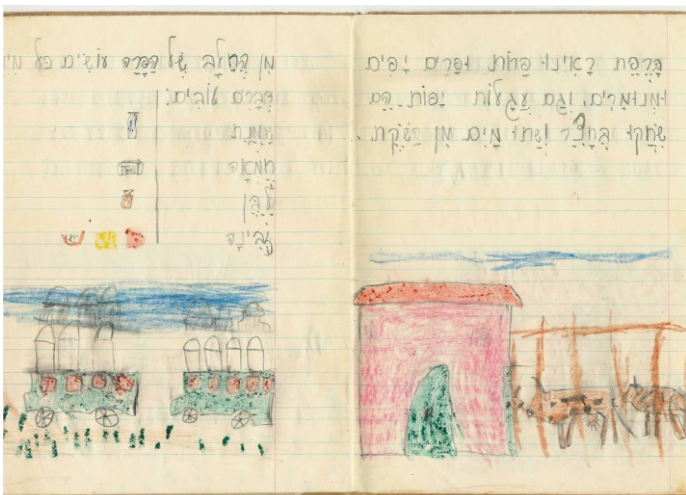 בָּרֶפֶת רָאִינוּ פָּרוֹת וּפָרִים יָפִים
וּמְנוּמָרִים, וְגַם עֲגָלוֹת יָפוֹת הֵם
שִׂחֲקוּ בֶּחָצֵר וְשָׁתוּ מַיִם מִן הַשֹׁקֶת.
מִן הֶחָלָב שֶׁל הַפָּרָה עוֹשִׂים כֹּל
דְבָרִם טוֹבִים:
שַׁמֶּנֶת
חֶמְאָה
לֶבֶּן
גְבִינָה